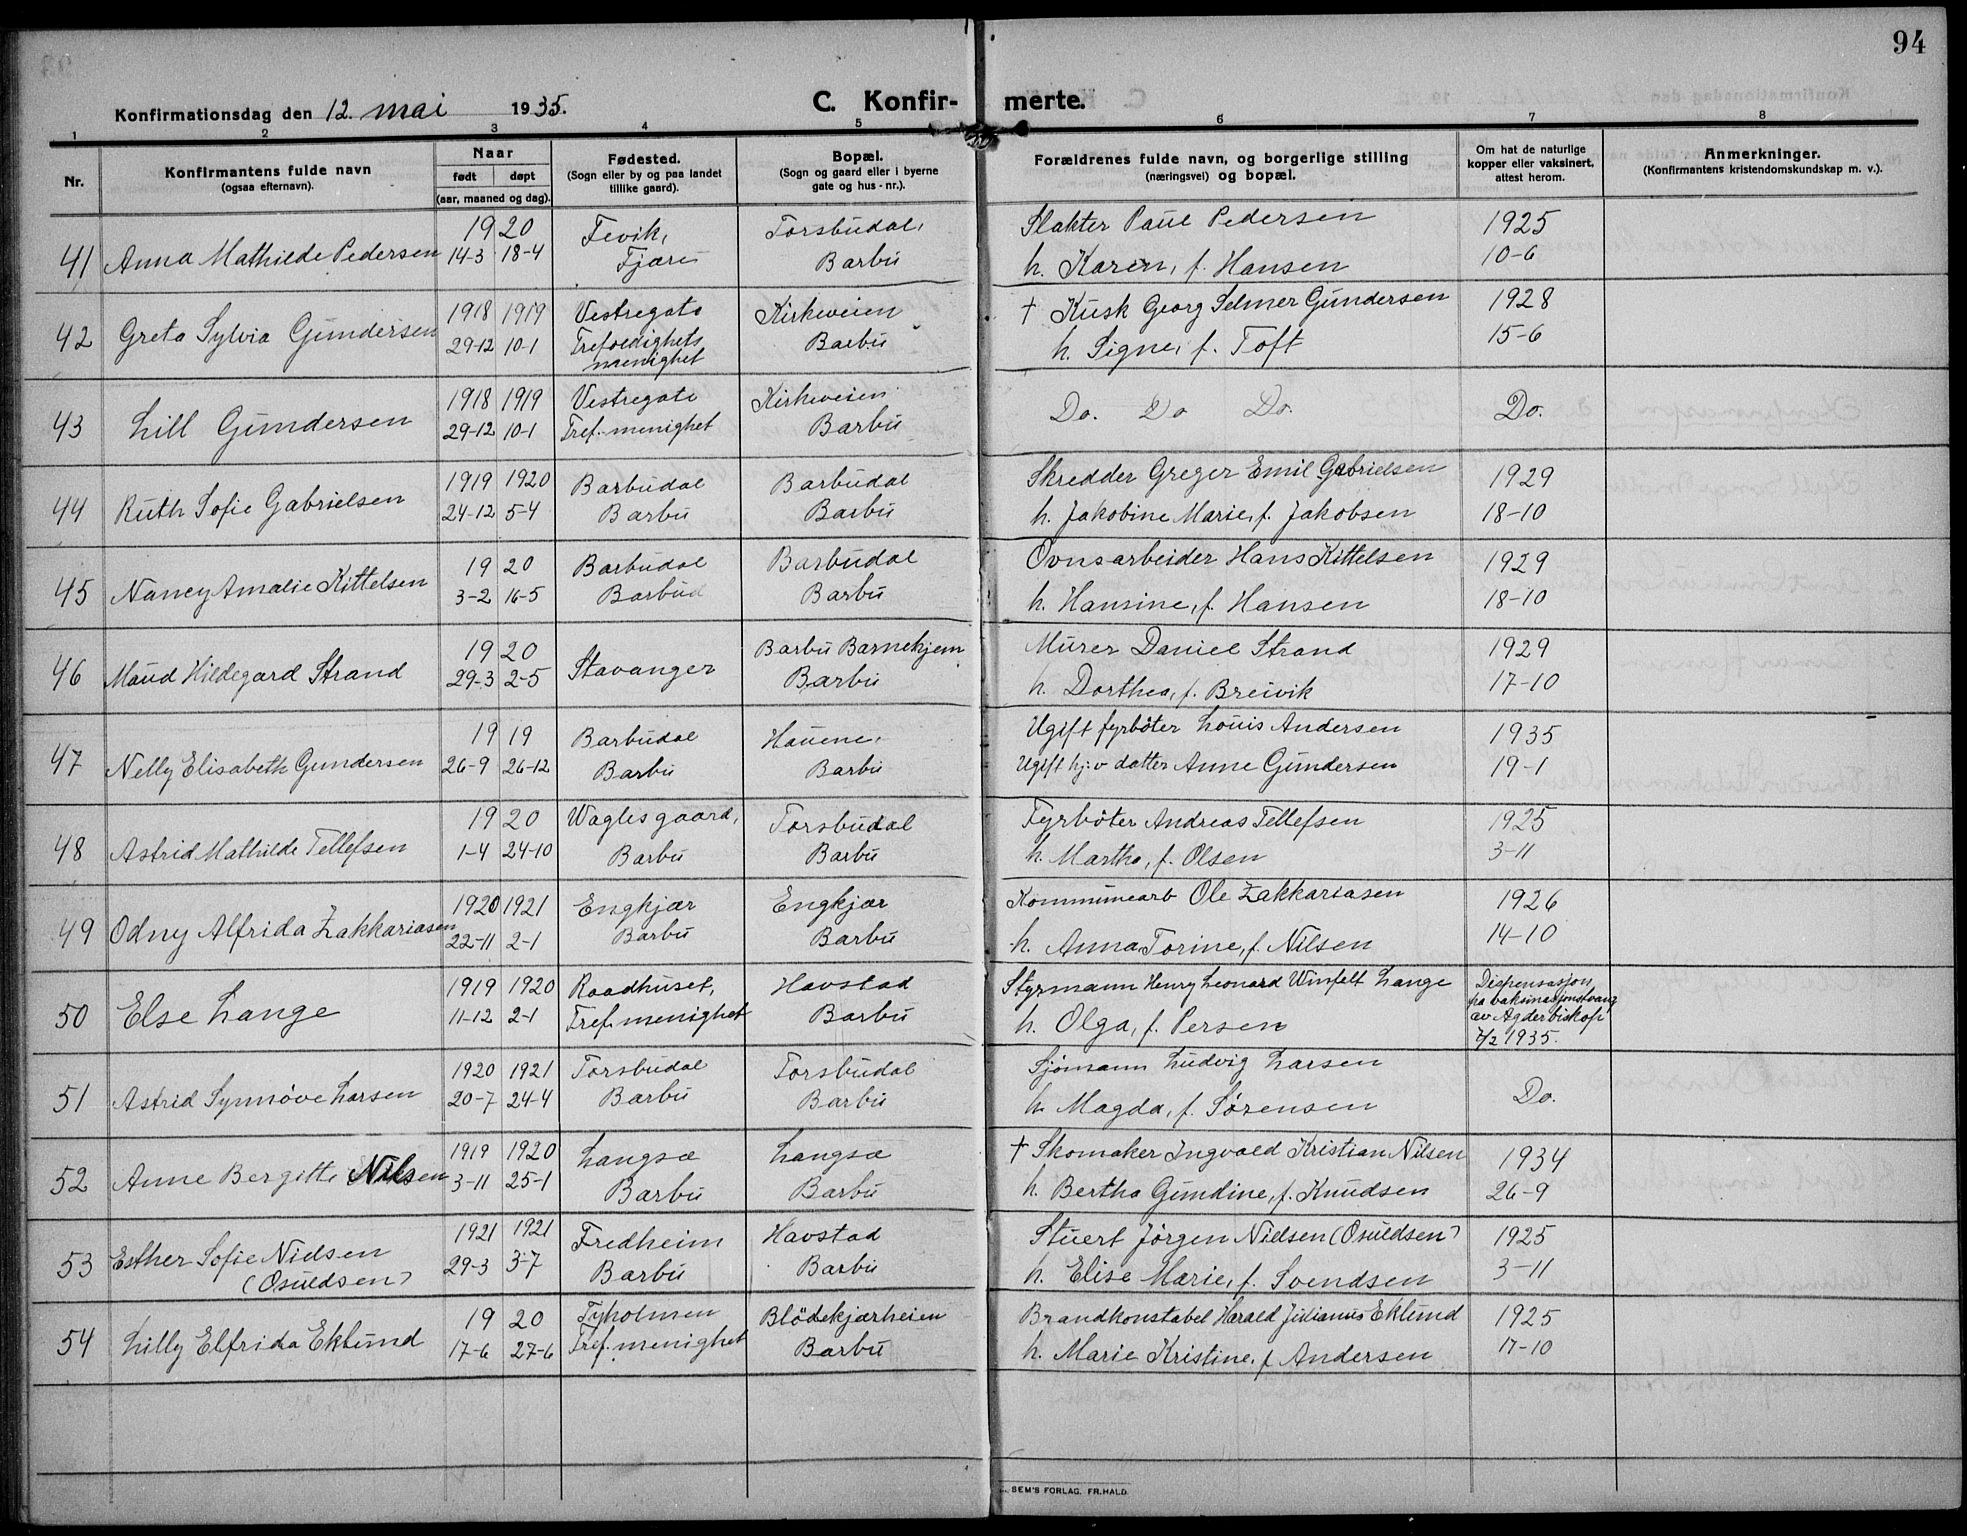 94
Konfirmationsdag den 12. mai 1935.
C. Konfir- merte.
1 2 3 4 5 6 7 8
Nr.
Konfirmantens fulde navn
(ogsaa efternavn).
Naar
født døpt
(aar, maaned og dag).
Fødested.
(Sogn eller by og paa landet
tillike gaard).
Bopæl.
(Sogn og gaard eller i byerne
gate og hus-nr.).
Forældrenes fulde navn, og borgerlige stilling
(næringsvei) og bopæl.
Om hat de naturlige
kopper eller vaksinert,
attest herom.
Anmerkninger.
(Konfirmantens kristendomskundskap m. v.).
19 20 Fevik, Torsbudal, Slakter Paul Pedersen 1925
41 Anna Mathilde Pedersen 14-3 18-4 Fjære Barbu h. Karen, f. Hansen 10-6
1918 1919 Vestregate Kirkeveien † Kusk Georg Selmer Gundersen 1928
42 Greta Sylvia Gundersen 29-12 10-1 Trefoldighets Barbu h. Signe, f. Toft 15-6
menighet
1918 1919 Vestregate Kirkeveien Do. Do Do. Do.
43 Lill Gundersen 29-12 10-1 Tref. menighet Barbu
1919 1920 Barbudal Barbudal Skredder Greger Emil Gabrielsen 1929
44 Ruth Sofie Gabrielsen 24-12 5-4 Barbu Barbu h. Jakobine Marie, f. Jakobsen 18-10
19 20 Barbudal Barbudal Ovnsarbeider Hans Kittelsen 1929
45 Nancy Amalie Kittelsen 3-2 16-5 Barbud Barbu h. Hansine, f. Hansen 18-10
19 20 Barbu Barnehjem Murer Daniel Strand 1929
46 Maud Hildegard Strand 29-3 2-5 Stavanger Barbu h. Dorthea, f. Breivik 17-10
19 19 Barbudal Hauene, Ugift fyrbøter Louis Andersen 1935
47 Nelly Elisabeth Gundersen 26-9 26-12 Barbu Barbu Ugift hj.v datter Anne Gundersen 19-1
19 20 Wagles gaard, Torsbudal Fyrbøter Andreas Tellefsen 1925
48 Astrid Mathilde Tellefsen 1-4 24-10 Barbu Barbu h. Martha, f. Olsen 3-11
1920 1921 Engkjær Engkjær Kommunearb Ole Zakkariasen 1926
49 Odny Alfrida Zakkariasen 22-11 2-1 Barbu Barbu h. Anna Torine, f. Nilsen 14-10
1919 1920 Raadhuset, Havstad Styrmann Henry Leonard Winfelt Lange Dispensasjon
50 Else Lange 11-12 2-1 Tref. menighet Barbu h. Olga, f. Persen fra vaksinasjonstvang
av Agder biskop
7/2 1935.
1920 1921 Torsbudal Torsbudal Sjømann Ludvig Larsen
51 Astrid Synnøve Larsen 20-7 24-4 Barbu Barbu h. Magda, f. Sørensen Do.
1919 1920 Langsæ Langsæ † Skomaker Ingvald Kristian Nilsen 1934
52 Anne Bergitte Nilsen 3-11 25-1 Barbu Barbu h. Bertha Gundine, f. Knudsen 26-9
1921 1921 Fredheim Havstad Stuert Jørgen Nielsen (Osuldsen) 1925
53 Esther Sofie Nielsen 29-3 3-7 Barbu Barbu h. Elise Marie, f. Svendsen 3-11
(Osuldsen)
19 20 Tyholmen Blödekjærheien Brandkonstabel Harald Julianus Eklund 1925
54 Lilly Elfrida Eklund 17-6 27-6 Tref. menighet Barbu h. Marie Kristine, f Andersen 17-10
SEM'S FORLAG. FR.HALD.